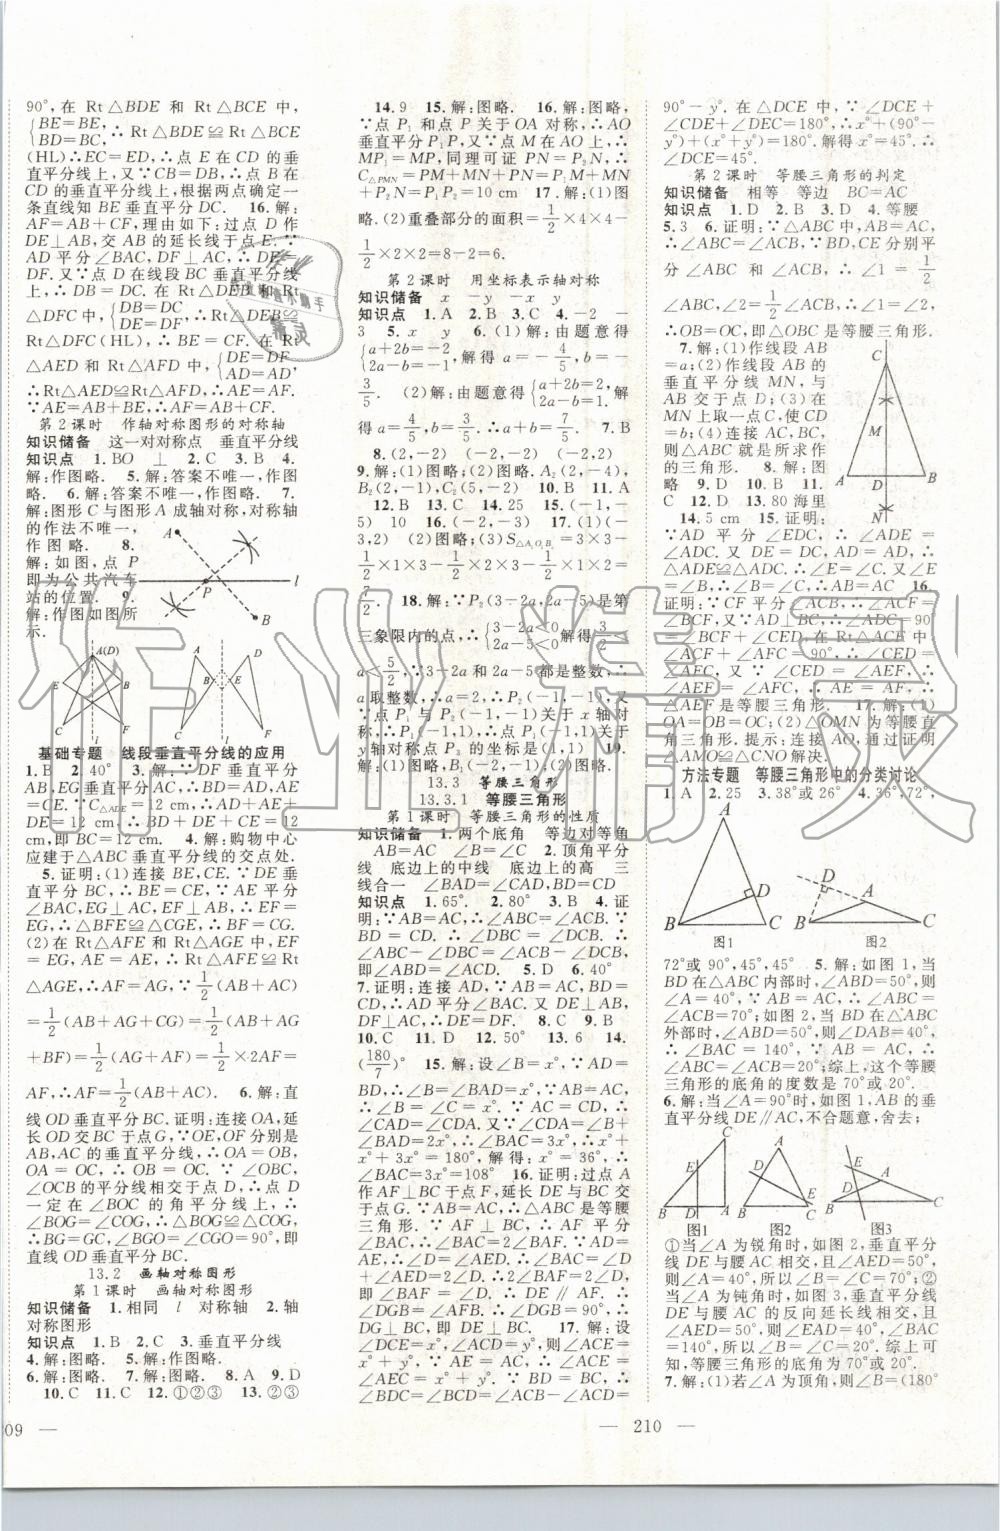 90°,在 Rt△BDE 和 Rt△BCE 中,
{BE=BE,
BD=BC, ∴Rt△BDE≌Rt△BCE
(HL)∴EC=ED,∴点 E 在 CD 的垂
直平分线上,又∵CB=DB,∴点 B 在
CD 的垂直平分线上,根据两点确定一
条直线知 BE 垂直平分 DC. 16.解:
AF=AB+CF,理由如下:过点 D 作
DE⊥AB,交 AB 的延长线于点 E.∵
AD 平分∠BAC,DF⊥AC,∴DE=
DF.又∵点 D 在线段 BC 垂直平分线
上,∴DB=DC.在 Rt△DBE 和 Rt
△DFC 中,{DB=DC
DE=DF, ∴Rt△DBE≌
Rt△DFC(HL),∴BE=CF.在 Rt
△AED 和 Rt△AFD 中,{DE=DF
AD=AD,
∴Rt△AED≌Rt△AFD,∴AE=AF.
∵AE=AB+BE,∴AF=AB+CF.
第2课时 作轴对称图形的对称轴
知识储备 这一对对称点 垂直平分线
知识点 1.BO ⊥ 2.C 3.B 4.
解:作图略. 5.解:答案不唯一,作图
略. 6.解:答案不唯一,作图略. 7.
解:图形 C 与图形 A 成轴对称,对称轴
的作法不唯一,
作图略. 8.
解:如图,点 P
即为公共汽车
站的位置. 9.
解:作图如图所
示.
A P l B
A(D) E B C F l
基础专题 线段垂直平分线的应用
1.B 2.40° 3.解:∵DF 垂直平分
AB,EG 垂直平分 AC,∴AD=BD,AE
=CE.∵C△ADE=12 cm,∴AD+AE+
DE=12 cm,∴BD+DE+CE=12
cm,即 BC=12 cm. 4.解:购物中心
应建于△ABC 垂直平分线的交点处.
5.证明:(1)连接 BE,CE.∵DE 垂
直平分 BC,∴BE=CE.∵AE 平分
∠BAC,EG⊥AC,EF⊥AB,∴EF=
EG,∴△BFE≌△CGE,∴BF=CG.
(2)在 Rt△AFE 和 Rt△AGE 中,EF
=EG,AE=AE∴Rt△AFE≌Rt
△AGE,∴AF=AG,∴1/2(AB+AC)
=1/2(AB+AG+CG)=1/2(AB+AG
+BF)=1/2(AF+AG)=1/2×2AF=
AF,∴AF=1/2(AB+AC) 6.解:直
线 OD 垂直平分 BC.证明:连接 OA,延
长 OD 交 BC 于点 G.∵OE,OF 分别是
AB,AC 的垂直平分线,∴OA=OB,OA
=OC,∴OB=OC.∵∠OBC,
∠OCB 的平分线相交于点 D,∴点 D
一定在∠BOC 的角平分线上,∴
∠BOG=∠COG,∴△BOG≌△COG,
∴BG=GC,∠BGO=∠CGO=90°,即
直线 OD 垂直平分 BC.
13.2 画轴对称图形
第1课时 画轴对称图形
知识储备 1.相同 l 对称轴 2.轴
对称图形
知识点 1.B 2.C 3.垂直平分线
4.解:图略. 5.解:作图略.
6.解:图略. 7.解:图略. 8.A 9.D
10.C 11.C 12.①②③ 13.②③
09 —
14.9 15.解:图略. 16.解:图略.
∵点 P₁ 和点 P 关于 OA 对称,∴AO
垂直平分 P₁P,又∵M 在 AO 上,∴
MP₁=MP,同理可证 PN=P₂N,∴
C△PMN=PM+MN+PN=P₁M+MN
+P₂N=P₁P₂=10 cm 17.解:(1)图
略.(2)重叠部分的面积=1/2×4×4-
1/2×2×2=8-2=6.
第2课时 用坐标表示轴对称
知识储备 x -y -x y
知识点 1.A 2.B 3.C 4.-2 -
3 5.x y 6.(1)解:由题意得
{a+2b=-2,
2a-b=-1, 解得 a=-4/5,b=-
3/5. (2)解:由题意得{a+2b=2,
2a-b=1, 解
得 a=4/5,b=3/5.∴a+b=7/5. 7.B
8.(2,-2) (-2,2) (-2,-2)
9.解:(1)图略.(2)图略.A₂(2,-4),
B₂(2,-1),C₂(5,-2) 10.B 11.A
12.B 13.C 14.25 15.(-2,
5) 10 16.(-2,-3) 17.(1)(-
3,2) (2)图略;(3)S△A₁O₁B₁=3×3-
1/2×3×1-1/2×1×2-1/2×2×3=
7/2. 18.解:∵P₂(3-2a,2a-5)是第
三象限内的点,∴{3-2a<0
2a-5<0, 解得3/2<
a<5/2,∵3-2a 和 2a-5 都是整数,∴
a 取整数,∴a=2,∴P₂(-1,-1),又
∵点 P₁ 与 P₂(-1,-1)关于 x 轴对
称,∴P₁(-1,1),∵点 P 与点 P₁ 关于
y 轴对称∴点 P 的坐标是(1,1). 19.
解:图略,B₁(-3,-1);(2)图略.
13.3 等腰三角形
13.3.1 等腰三角形
第1课时 等腰三角形的性质
知识储备 1.两个底角 等边对等角
AB=AC ∠B=∠C 2.顶角平分
线 底边上的中线 底边上的高 三
线合一 ∠BAD=∠CAD BD=CD
知识点 1.65° 2.80° 3.B 4.证
明:∵AB=AC,∴∠ABC=∠ACB.∵
BD=CD.∴∠DBC=∠DCB.∴
∠ABC-∠DBC=∠ACB-∠DCB,
即∠ABD=∠ACD. 5.D 6.40°
7.证明:连接 AD,∵AB=AC,D 是 BC
中点,∴AD 平分∠BAC.又 DE⊥AB,
DF⊥AC,∴DE=DF 8.C 9.B
10.C 11.D 12.50° 13.6 14.
(180/7)° 15.解:设∠B=x°,∵AD=
BD,∴∠B=∠BAD=x°.∵AB=AC,
∴∠B=∠C=x°.∵AC=DC,∴
∠DAC=∠ADC=∠B+∠BAD=
2x°.∵∠B+∠BAC+∠C=180°,∴x°+
x°+3x°=180°,解得:x°=36°,∴
∠BAC=3x°=108° 16.证明:过点 A
作 AF⊥BC 于点 F,延长 DE 交 BC 于
点 G.∵AB=AC,∴△ABC 是等腰三
角形.∵AF⊥BC,∴∠BAF=
∠CAF.∵AD=AE,∴∠D=∠AED.∵
∠BAC=∠D+∠AED,∴2∠CAF=
2∠AED.∴DE∥AF.∴
∠DGB=∠AFB,∴∠DGB=90°,∴
DG⊥BF,即 DE⊥BC. 17.解:设
∠DCE=x°,∠ACD=y°,则∠ACE=
x°+y°.∵AE=AC,∴∠ACE=
∠AEC=x°+y°.∵BD=BC,∴
∠BDC=∠BCD=∠BCE+∠DCE=
— 210 —
90°-y°.在△DCE 中,∵∠DCE+
∠CDE+∠DEC=180°,∴x°+(90°-
y°)+(x°+y°)=180°.解得 x=45°.∴
∠DCE=45°.
第2课时 等腰三角形的判定
知识储备 相等 等边 BC=AC
知识点 1.D 2.B 3.D 4.等腰
5.3 6.证明:∵△ABC 中,AB=AC,
∴∠ABC=∠ACB,∵BD,CE 分别平
分∠ABC 和∠ACB,∴∠1=1/2
∠ABC,∠2=1/2∠ACB,∴∠1=∠2,
∴OB=OC,即△OBC 是等腰三角形.
7.解:(1)作线段 AB
=a;(2)作线段 AB 的
垂直平分线 MN,与
AB 交于点 D;(3)在
MN 上取一点 C,使 CD
=b;(4)连接 AC,BC,
则△ABC 就是所求作
的三角形. 8.解:图
略 9.D 10.B 11.
C 12.D 13.80 海里
14.5 cm 15.证明:
∵AD 平分∠EDC,∴∠ADE=
∠ADC.∵DE=DC,AD=AD,∴
△ADE≌△ADC.∴∠E=∠C.又∵∠E
=∠B,∴∠B=∠C,∴AB=AC 16.
证明:∵CF 平分∠ACB,∴∠ACF=
∠BCF,又∵AD⊥BC,∴∠ADC=90°
=∠BCF+∠CED.在 Rt△ACF 中
∠ACF+∠AFC=90°,∴∠AFC=
∠CED,又∵∠CED=∠AEF,∴
∠AEF=∠AFE,∴AE=AF,∴
△AEF 是等腰三角形. 17.解:(1)
OA=OB=OC;(2)△OMN 为等腰直
角三角形.提示:连接 AO,通过证
△AMO≌△CNO 解决.
C M A D B N
方法专题 等腰三角形中的分类讨论
1.A 2.25 3.38°或 26° 4.36°,72°,
A D B C
图1
D A B C
图2
72°或 90°,45°,45° 5.解:如图 1,当
BD 在△ABC 内部时,∠ABD=50°,则
∠A=40°,∵AB=AC,∴∠ABC=
∠ACB=70°;如图 2,当 BD 在△ABC
外部时,∠ABD=50°,则∠DAB=40°,
∴∠BAC=140°,∵AB=AC,∴
∠ABC=∠ACB=20°;综上,这个等腰
三角形的底角的度数是 70°或 20°.
6.解:当∠A=90°时,如图 1,AB 的垂
直平分线 DE∥AC,不合题意,舍去;
C E A B D
图1
A E B C
图2
E A B C
图3
①当∠A 为锐角时,如图 2,垂直平分
线 DE 与腰 AC 相交,∵∠AED=50°,
∴∠A=40°,∴∠B=∠C=70°;②
当∠A 为钝角时,如图 3,垂直平分线
DE 与腰 AC 的反向延长线相交,且
∠AED=50°,则∠EAD=40°,∴
∠BAC=140°,∴∠B=∠C=20°.综上
可知,等腰三角形的底角为 70°或 20°.
7.解:(1)若∠A 为顶角,则∠B=(180°
作业精灵